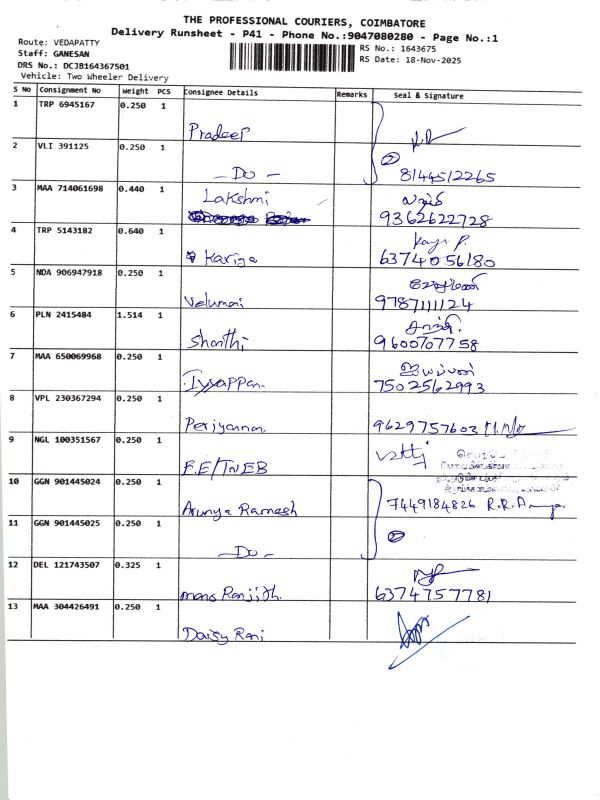 THE PROFESSIONAL COURIERS, COIMBATORE
Delivery Runsheet - P41 - Phone No.:9047080280 - Page No.:1
Route: VEDAPATTY
Staff: GANESAN
DRS No.: DCJB164367501
Vehicle: Two Wheeler Delivery
RS No.: 1643675
RS Date: 18-Nov-2025
S No Consignment No Weight PCS Consignee Details Remarks Seal & Signature
1 TRP 6945167 0.250 1
Pradeep
2 VLI 391125 0.250 1
2
- Do - 8144512265
3 MAA 714061698 0.440 1 Lakshmi
9362622728
4 TRP 5143182 0.640 1
Kariya 6374056180
5 NDA 906947918 0.250 1
Velumani 9787111124
6 PLN 2415484 1.514 1
Shanthi 9600707758
7 MAA 650069968 0.250 1 ஐயப்பன்
Iyyappan 7502562993
8 VPL 230367294 0.250 1
Periyannan 9629757603
9 NGL 100351567 0.250 1
F.E/TNEB
10 GGN 901445024 0.250 1
Arunya Ramesh 7449184826
11 GGN 901445025 0.250 1
2
- Do -
12 DEL 121743507 0.325 1
Ranjith. 6374757781
13 MAA 304426491 0.250 1
Daisy Rani